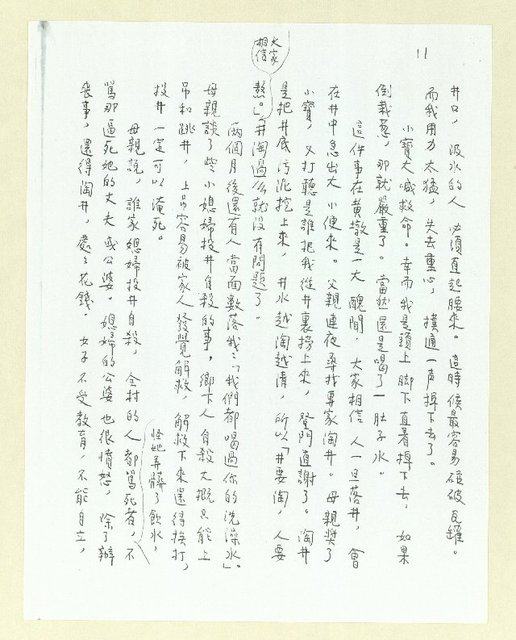 11
井口，汲水的人必須直起腰來。這時候最容易碰破瓦罐。
而我用力太猛，失去重心，撲通一声掉下去了。
小寶大喊救命。幸而我是頭上脚下直着掉下去，如果
倒栽葱，那就嚴重了。當然还是喝了一肚子水。
這件事在黄墩是一大醜聞，大家相信人一旦落井，會
在井中急出大小便來。父親連夜尋找專家淘井。母親奬了
小寶，又打聽是誰把我從井裏撈上來，登門道謝了。淘井
是把井底污泥挖上來，井水越淘越清，所以「井要淘，人要
熬。」大家相信井淘過么就没有問題了。
兩個月後還有人當面數落我：「我們都喝過你的洗澡水」。
母親談了些小媳婦投井自殺的事，鄉下人自殺大概只能上
吊和跳井，上吊容易被家人發覺解救，解救下來還得挨打，
投井一定可以淹死。
母親說，誰家媳婦投井自殺，全村的人都罵死者，怪她弄髒了飲水，不
罵那逼死她的丈夫或公婆。媳婦的公婆也很憤怒，除了辦
喪事，還得淘井，處々花錢。女子不受教育，不能自立，